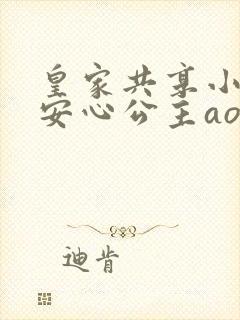 皇家共享小
安心公主ao
迪肯